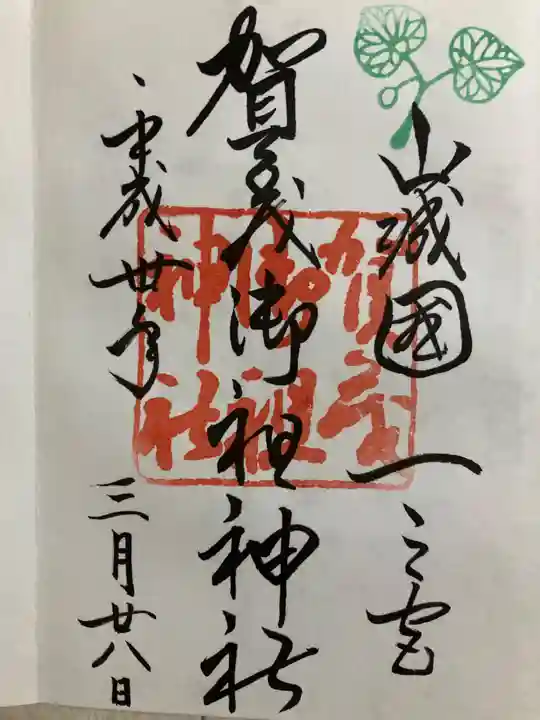 山城國一之宮
賀茂御祖神社
平成卅年
三月廿八日
賀茂
御祖
神社